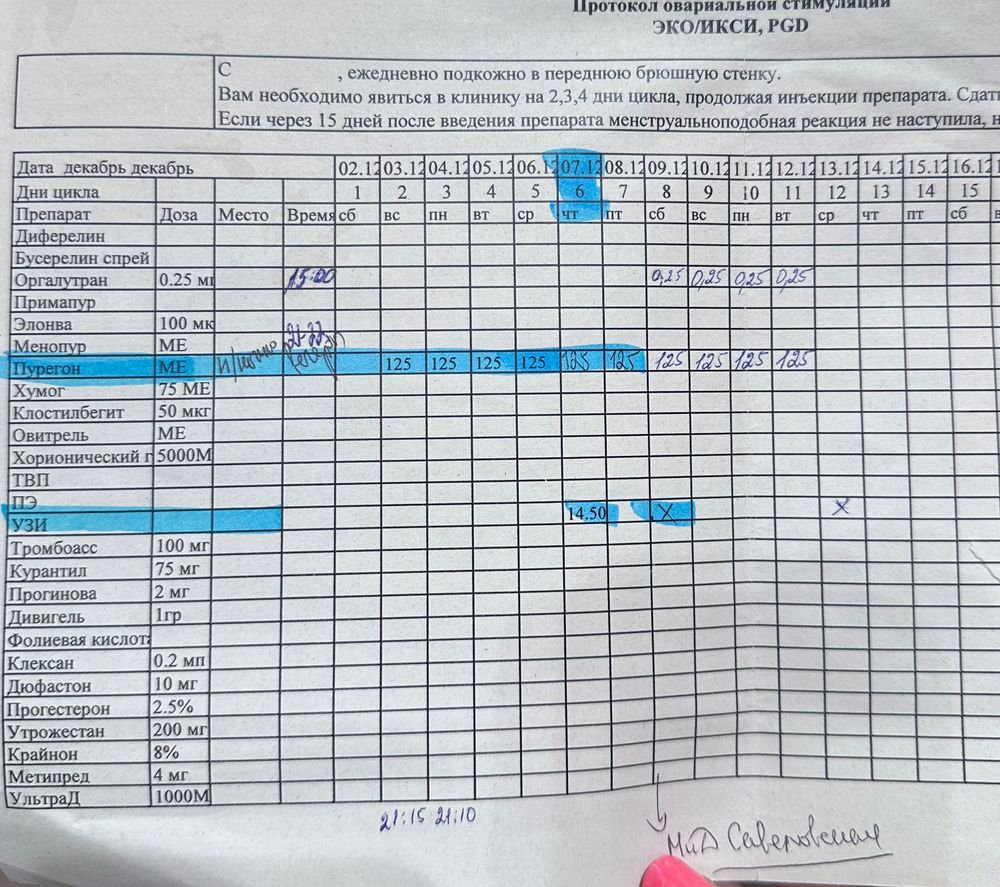 Протокол овариальной стимуляции
ЭКО/ИКСИ, PGD
С , ежедневно подкожно в переднюю брюшную стенку.
Вам необходимо явиться в клинику на 2,3,4 дни цикла, продолжая инъекции препарата.
Если через 15 дней после введения препарата менструальноподобная реакция не наступила,
Дата декабрь декабрь 02.12 03.12 04.12 05.12 06.12 07.12 08.12 09.12 10.12 11.12 12.12 13.12 14.12 15.12 16.12
Дни цикла 1 2 3 4 5 6 7 8 9 10 11 12 13 14 15
Препарат Доза Место Время сб вс пн вт ср чт пт сб вс пн вт ср чт пт сб
Диферелин
Бусерелин спрей
Оргалутран 0.25 мг 15:00 0,25 0,25 0,25 0,25
Примапур
Элонва 100 мк
Менопур МЕ 21-22
Пурегон МЕ 125 125 125 125 125 125 125 125 125 125
Хумог 75 МЕ
Клостилбегит 50 мкг
Овитрель МЕ
Хорионический г 5000М
ТВП
ПЭ
УЗИ 14.50 X X
Тромбоасс 100 мг
Курантил 75 мг
Прогинова 2 мг
Дивигель 1гр
Фолиевая кислота
Клексан 0.2 мп
Дюфастон 10 мг
Прогестерон 2.5%
Утрожестан 200 мг
Крайнон 8%
Метипред 4 мг
УльтраД 1000М
21:15 21:10